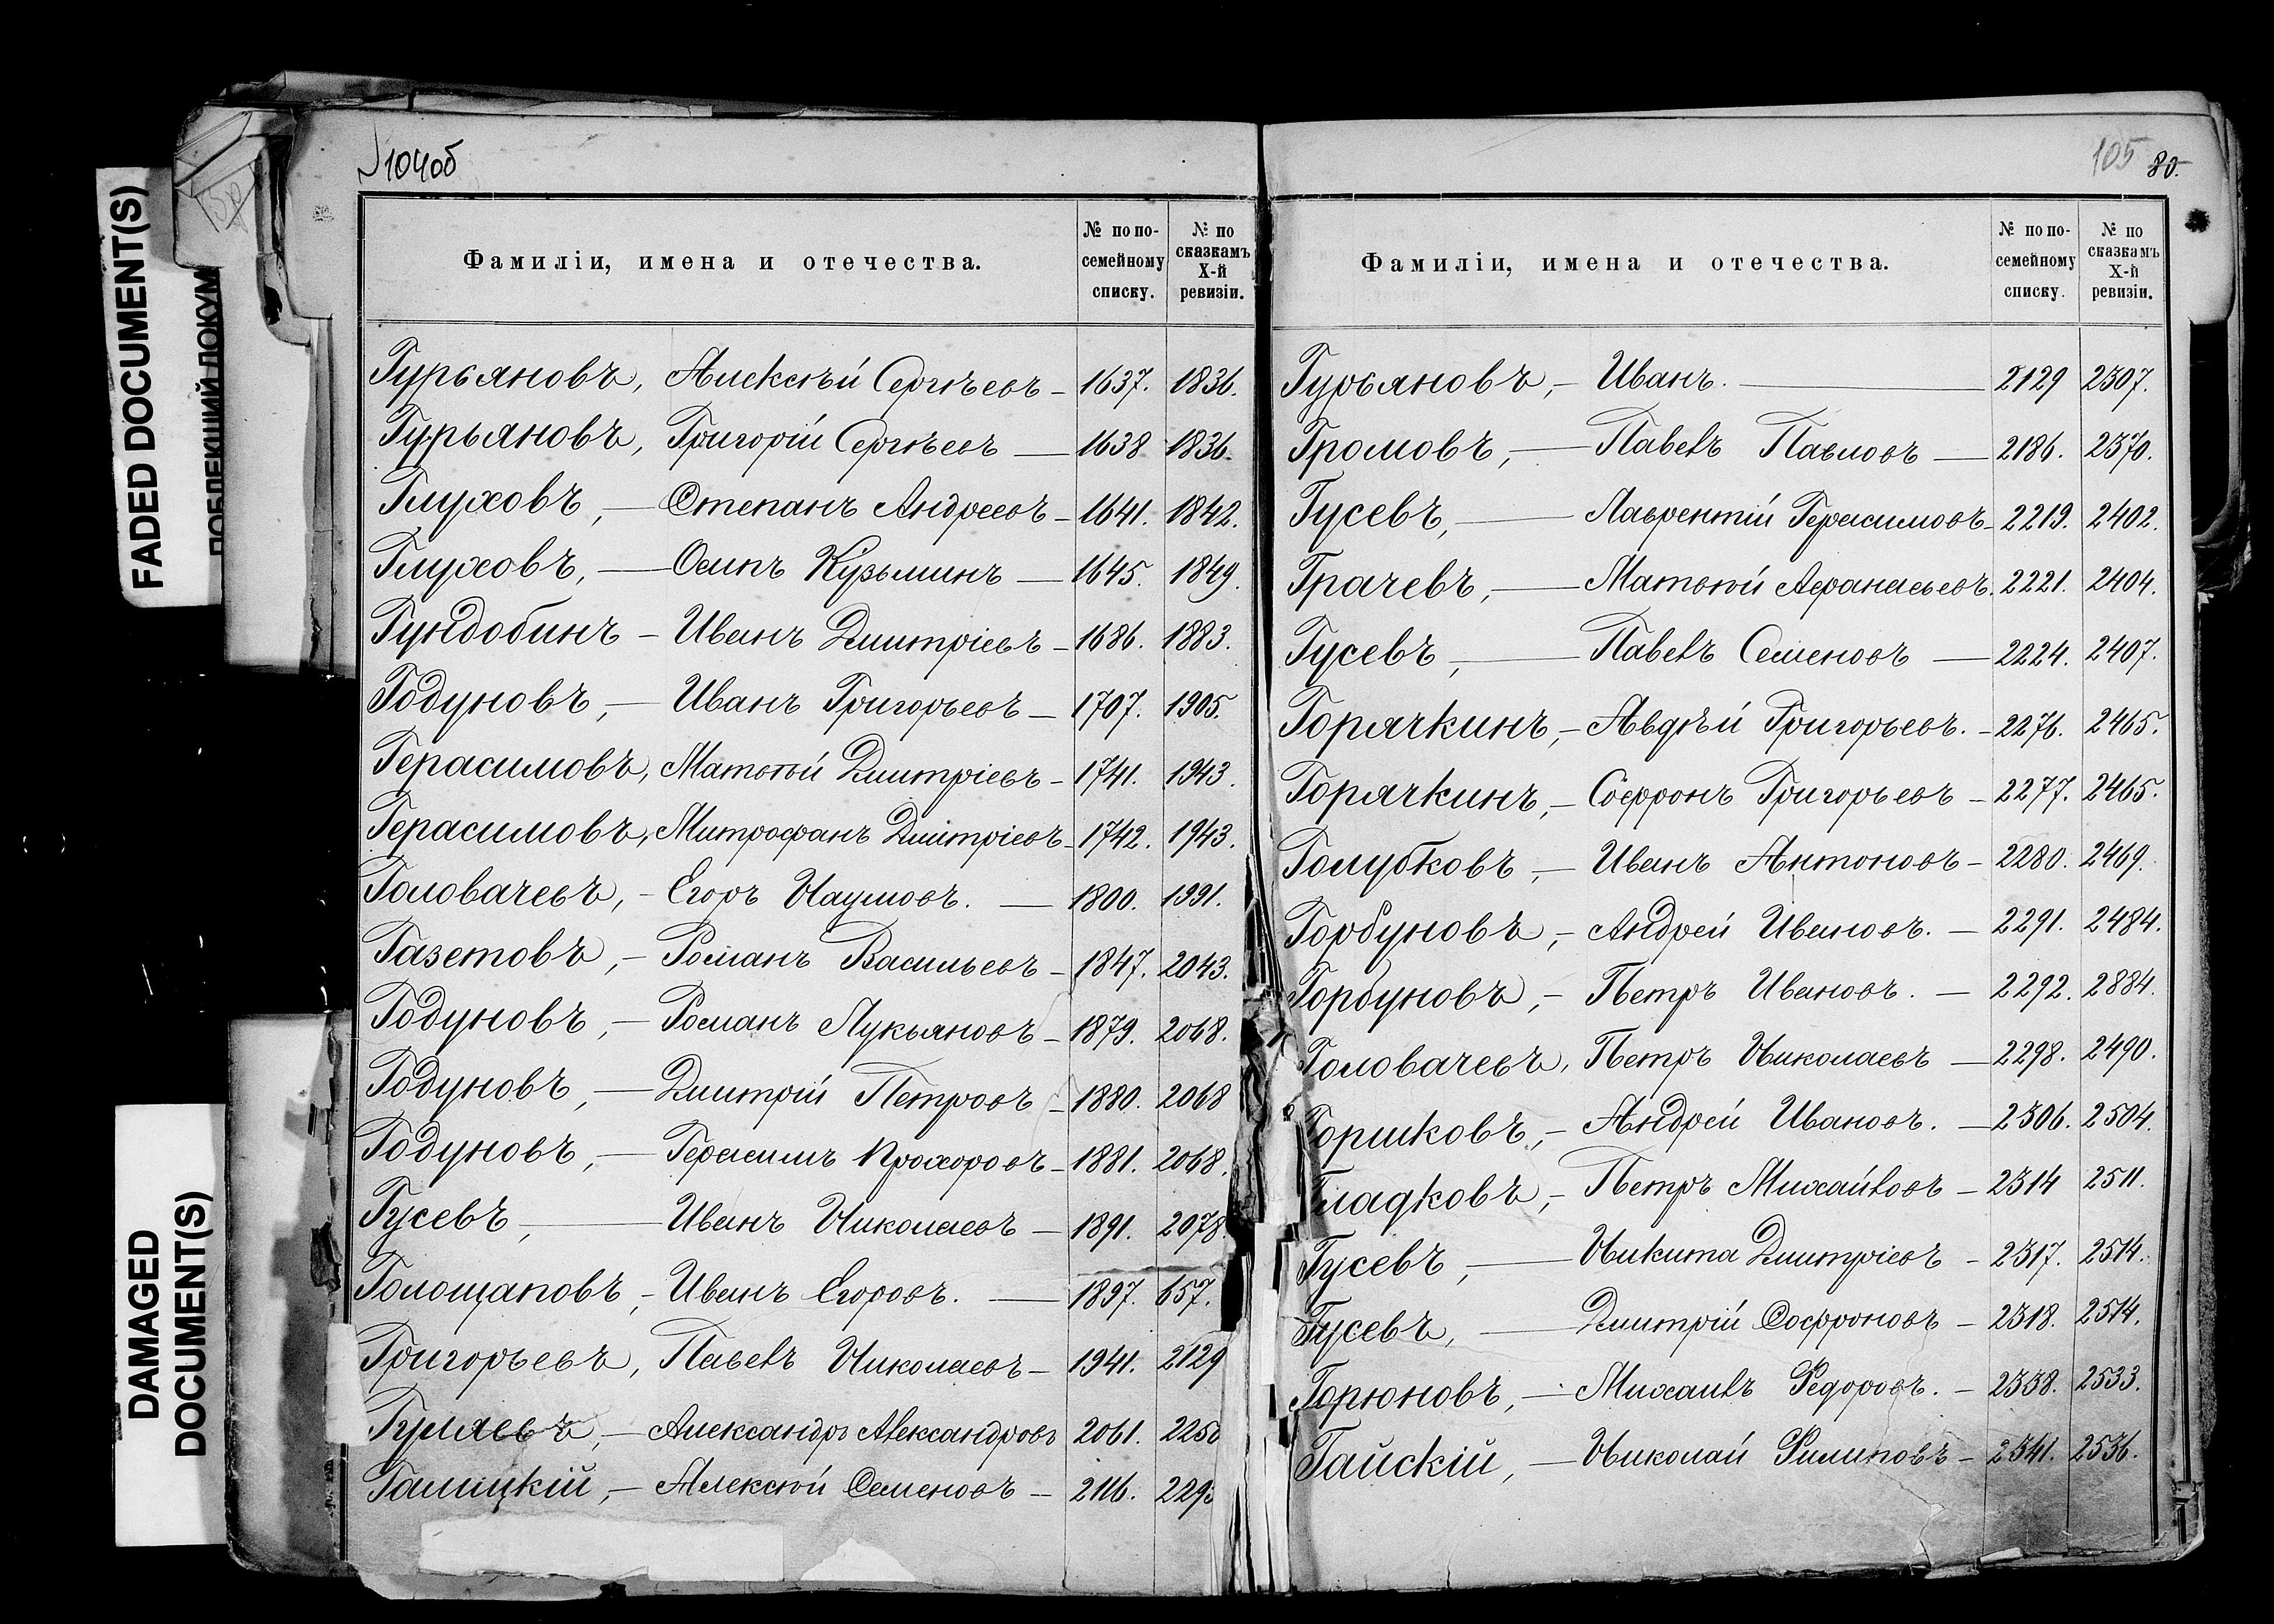 FADED DOCUMENT(S)
DAMAGED
DOCUMENT(S)
104об
Фамиліи, имена и отечества.
№ по по-
семейному
списку.
№ по
сказкамъ
X-й
ревизіи.
Гурьяновъ, Алексѣй Сергѣевъ – 1637. 1836.
Гурьяновъ, Григорій Сергѣевъ — 1638 1836.
Глуховъ, — Степанъ Андреевъ – 1641. 1842.
Глуховъ, — Осипъ Кузьминъ — 1645. 1849.
Гундобинъ – Иванъ Дмитріевъ – 1686. 1883.
Годуновъ, — Иванъ Григорьевъ – 1707. 1905.
Герасимовъ, Матвѣй Дмитріевъ – 1741. 1943.
Герасимовъ, Митрофанъ Дмитріевъ – 1742. 1943.
Головачевъ, – Егоръ Наумовъ. — 1800. 1991.
Газетовъ, – Романъ Васильевъ – 1847. 2043.
Годуновъ, — Романъ Лукьяновъ – 1879. 2068.
Годуновъ, — Дмитрій Петровъ – 1880. 2068
Годуновъ, — Герасимъ Прохоровъ – 1881. 2068.
Гусевъ, — Иванъ Николаевъ – 1891. 2078.
Голощаповъ, – Иванъ Егоровъ. — 1897. 657.
Григорьевъ, Павелъ Николаевъ – 1941. 2129
Гуляевъ, – Александръ Александровъ 2061. 225
Галицкій, – Алексѣй Семеновъ – 2116. 229
105 80.
Фамиліи, имена и отечества.
№ по по-
семейному
списку.
№ по
сказкамъ
X-й
ревизіи.
Гурьяновъ, – Иванъ. — 2129 2307.
Громовъ, — Павелъ Павловъ — 2186. 2370.
Гусевъ, — Лаврентій Герасимовъ – 2219. 2402.
Грачевъ, — Матвѣй Афанасьевъ. 2221. 2404.
Гусевъ, — Павелъ Семеновъ — 2224. 2407.
Горячкинъ, – Авдѣй Григорьевъ. – 2276. 2465.
Горячкинъ, – Софронъ Григорьевъ – 2277. 2465.
Голубковъ, — Иванъ Антоновъ – 2280. 2469.
Горбуновъ, – Андрей Ивановъ. – 2291. 2484.
Горбуновъ, – Петръ Ивановъ. — 2292. 2884.
Головачевъ, Петръ Николаевъ — 2298. 2490.
Горшковъ, – Андрей Ивановъ. — 2306. 2504.
Гладковъ, – Петръ Михайловъ – 2314 2511.
Гусевъ, — Никита Дмитріевъ – 2317. 2514.
Гусевъ, — Дмитрій Софроновъ – 2318. 2514.
Горюновъ, — Михаилъ Федоровъ. – 2338. 2533.
Гайскій, — Николай Филиповъ – 2341. 2536.